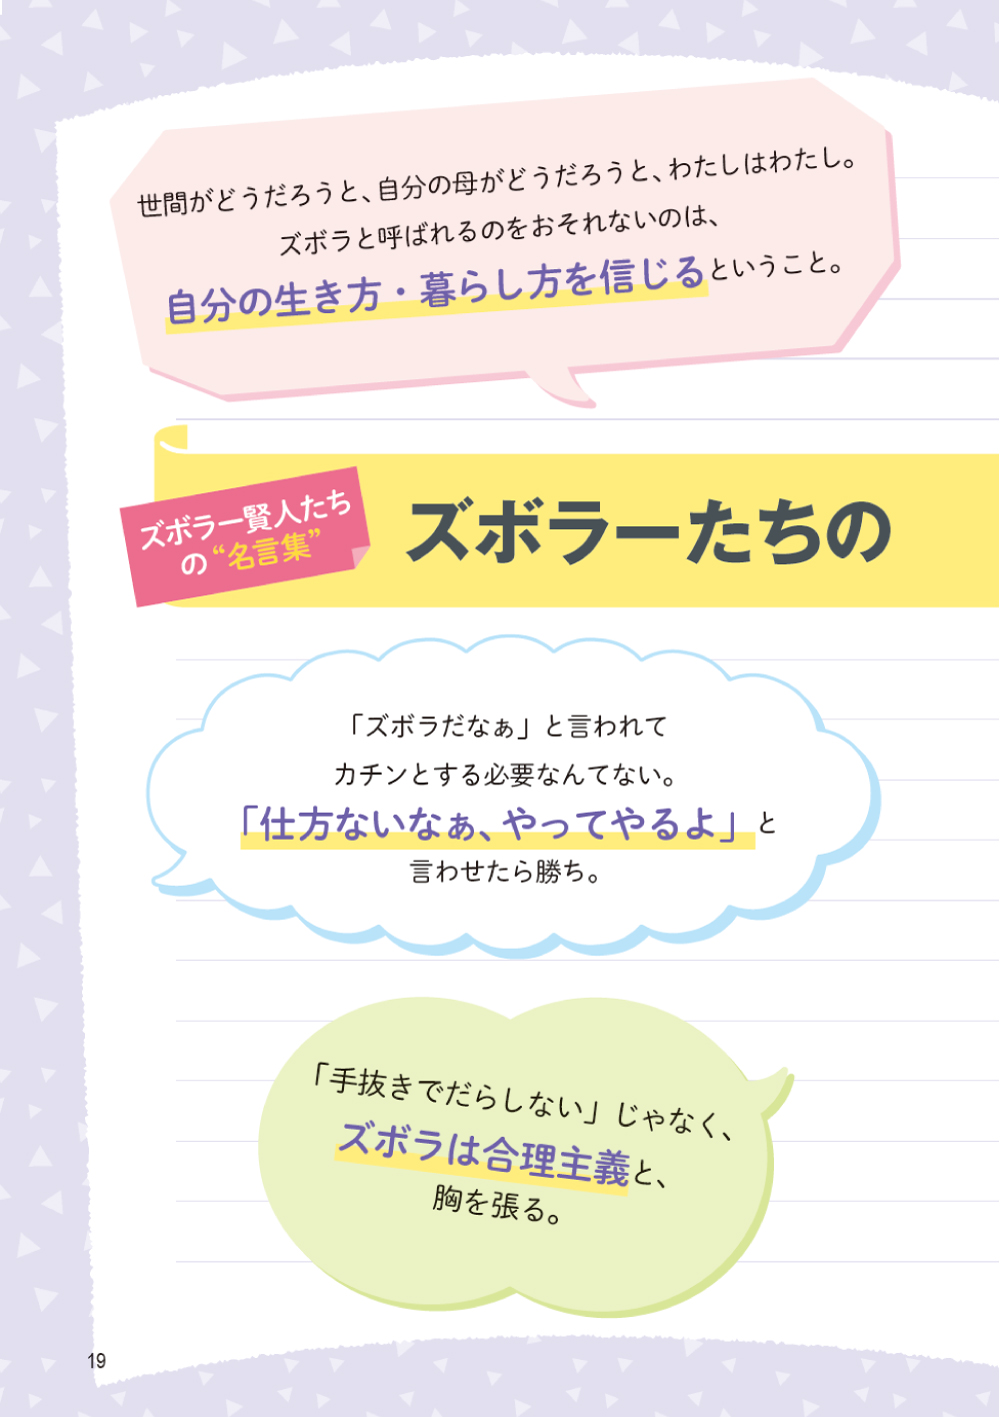 世間がどうだろうと、自分の母がどうだろうと、わたしはわたし。
ズボラと呼ばれるのをおそれないのは、
自分の生き方・暮らし方を信じるということ。
ズボラー賢人たち
の“名言集”
ズボラーたちの
「ズボラだなぁ」と言われて
カチンとする必要なんてない。
「仕方ないなぁ、やってやるよ」と
言わせたら勝ち。
「手抜きでだらしない」じゃなく、
ズボラは合理主義と、
胸を張る。
19